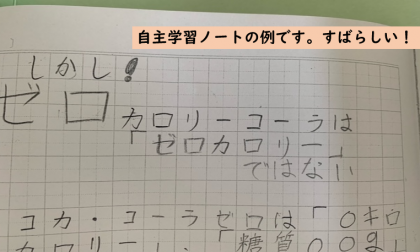 自主学習ノートの例です。すばらしい！
しかし！
ゼロ
カロリーコーラは
「ゼロカロリー」
ではない
コカ・コーラゼロは「0キロ
カロリー」、「糖質00g」